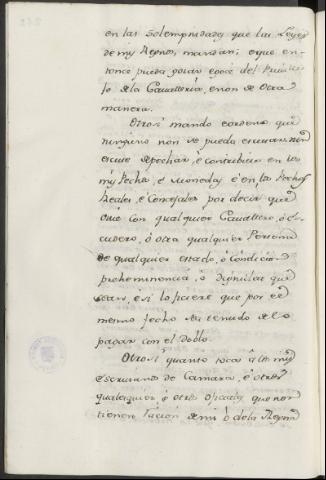 en las Solempnidades que las Leyes
de mis Reynos, mandan; e que en-
tonce pueda gozar e goce del Privile-
lo de la Cavalleria, e non de otra
manera.
Otrosi mando e ordeno que
ninguno non se pueda escusar, nin
escuse de pechar, é contribuir en los
mis Pechos, é Monedas é en los Pechos
Reales, é Concejales por decir que
vive con qualquier Cavallero, ó Es-
cudero, ó otra qualquier Persona
de qualquier estado, ó Condicion
preheminencia, ó dignidat que
sean, é si lo ficiere que por el
mesmo fecho sea tenudo de lo
pagar con el doblo.
Otrosi quanto toca á los mis
Escrivanos de Camara, é otros
qualesquier, é otros oficiales que non
tienen racion de mi ó de la Reyna